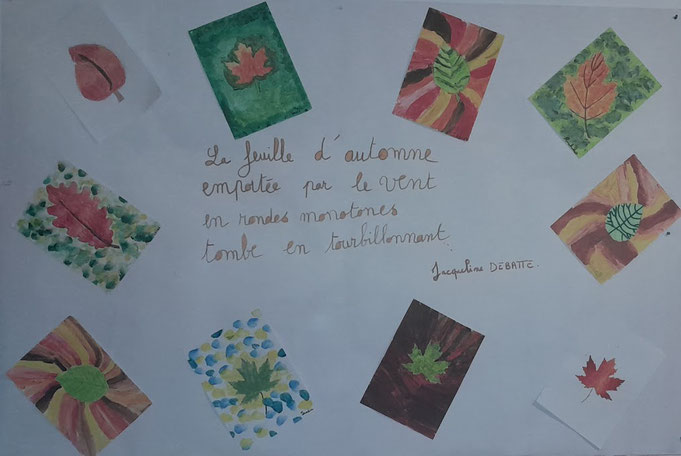 La feuille d'automne
emportée par le vent
en rondes monotones
tombe en tourbillonnant.
Jacqueline DEBATTE.